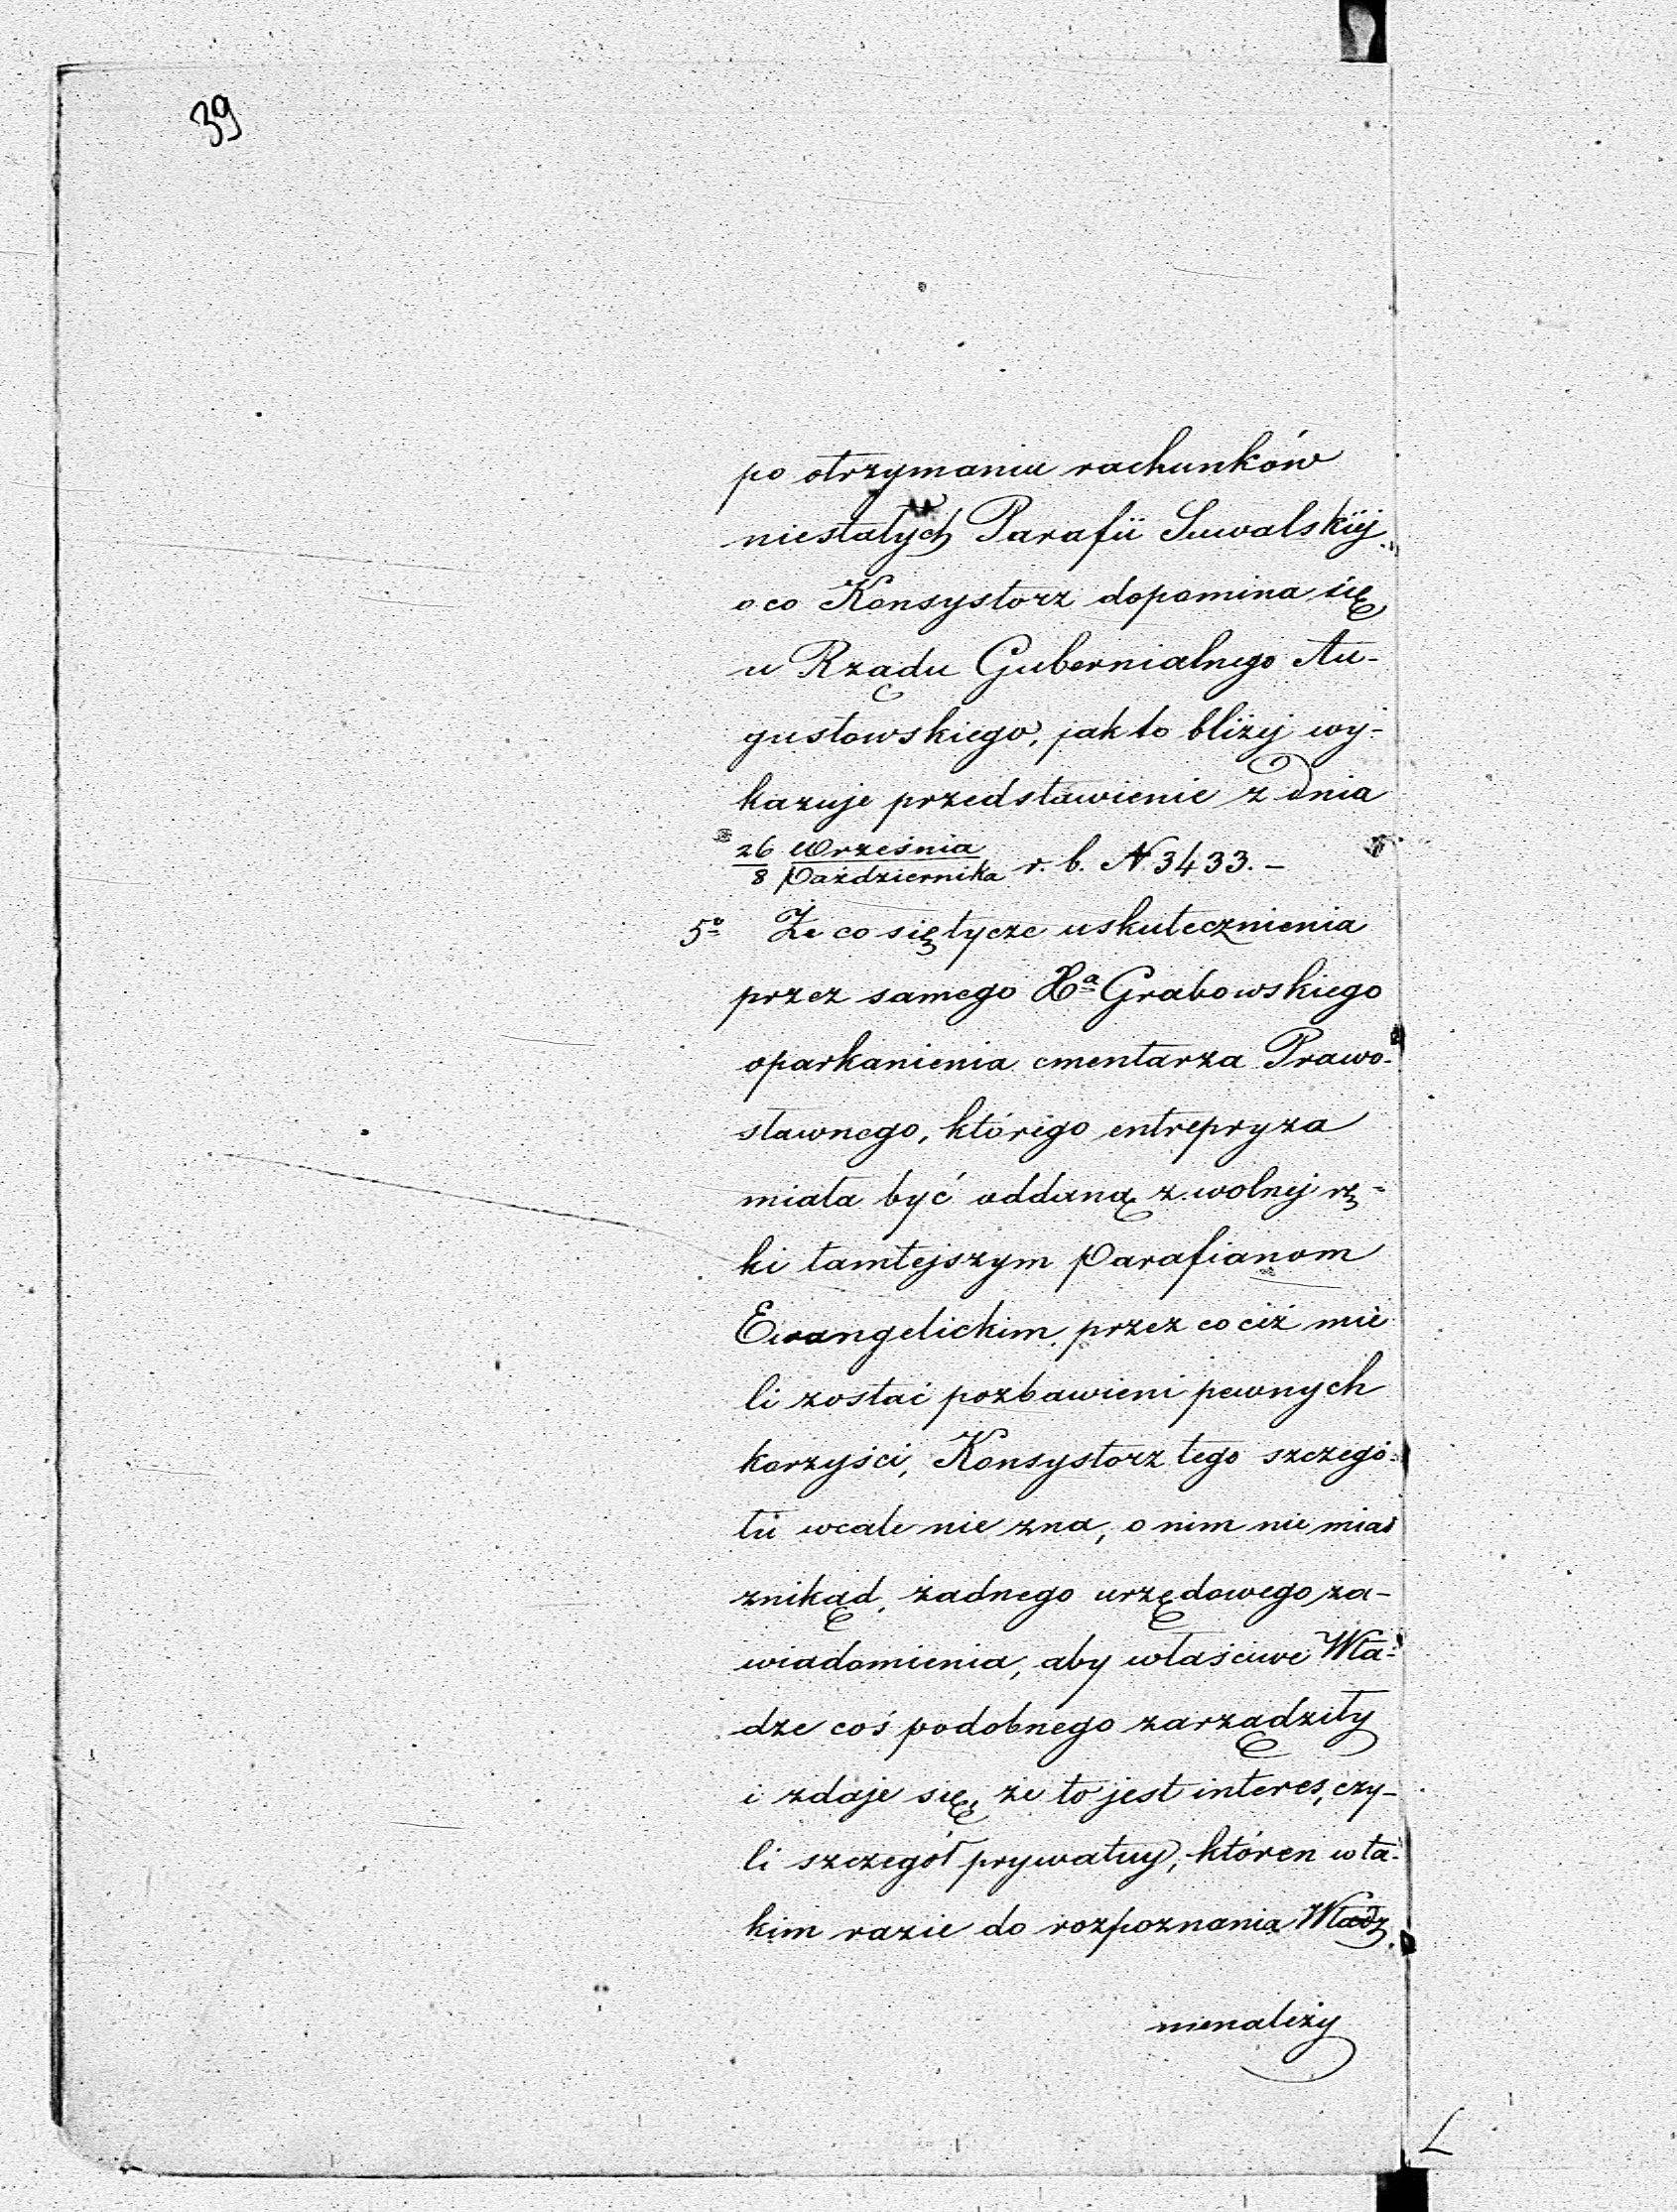 39
po otrzymaniu rachunków
niestałych Parafii Suwalskiéj,
o co Konsystorz dopomina się
u Rządu Gubernialnego Au-
gustowskiego, jak to bliżéj wy-
kazuje przedstawienie z dnia
26 Września
8 Października r. b. N 3433. –
5º Że co się tycze uskutecznienia
przez samego Xª Grabowskiego
oparkanienia cmentarza Prawo-
sławnego, którego entrepryza
miała być oddaną z wolnej rę-
ki tamtejszym Parafianom
Ewangelickim, przez co ciż mie
li zostać pozbawieni pewnych
korzyści, Konsystorz tego szczegó-
łu wcale nie zna, o nim nie miał
znikąd, żadnego urzędowego za-
wiadomienia, aby właściwe Wła-
dze coś podobnego zarządziły
i zdaje się, że to jest interes, czy-
li szczegół prywatny, któren w ta-
kim razie do rozpoznania Władz
nienależy
L